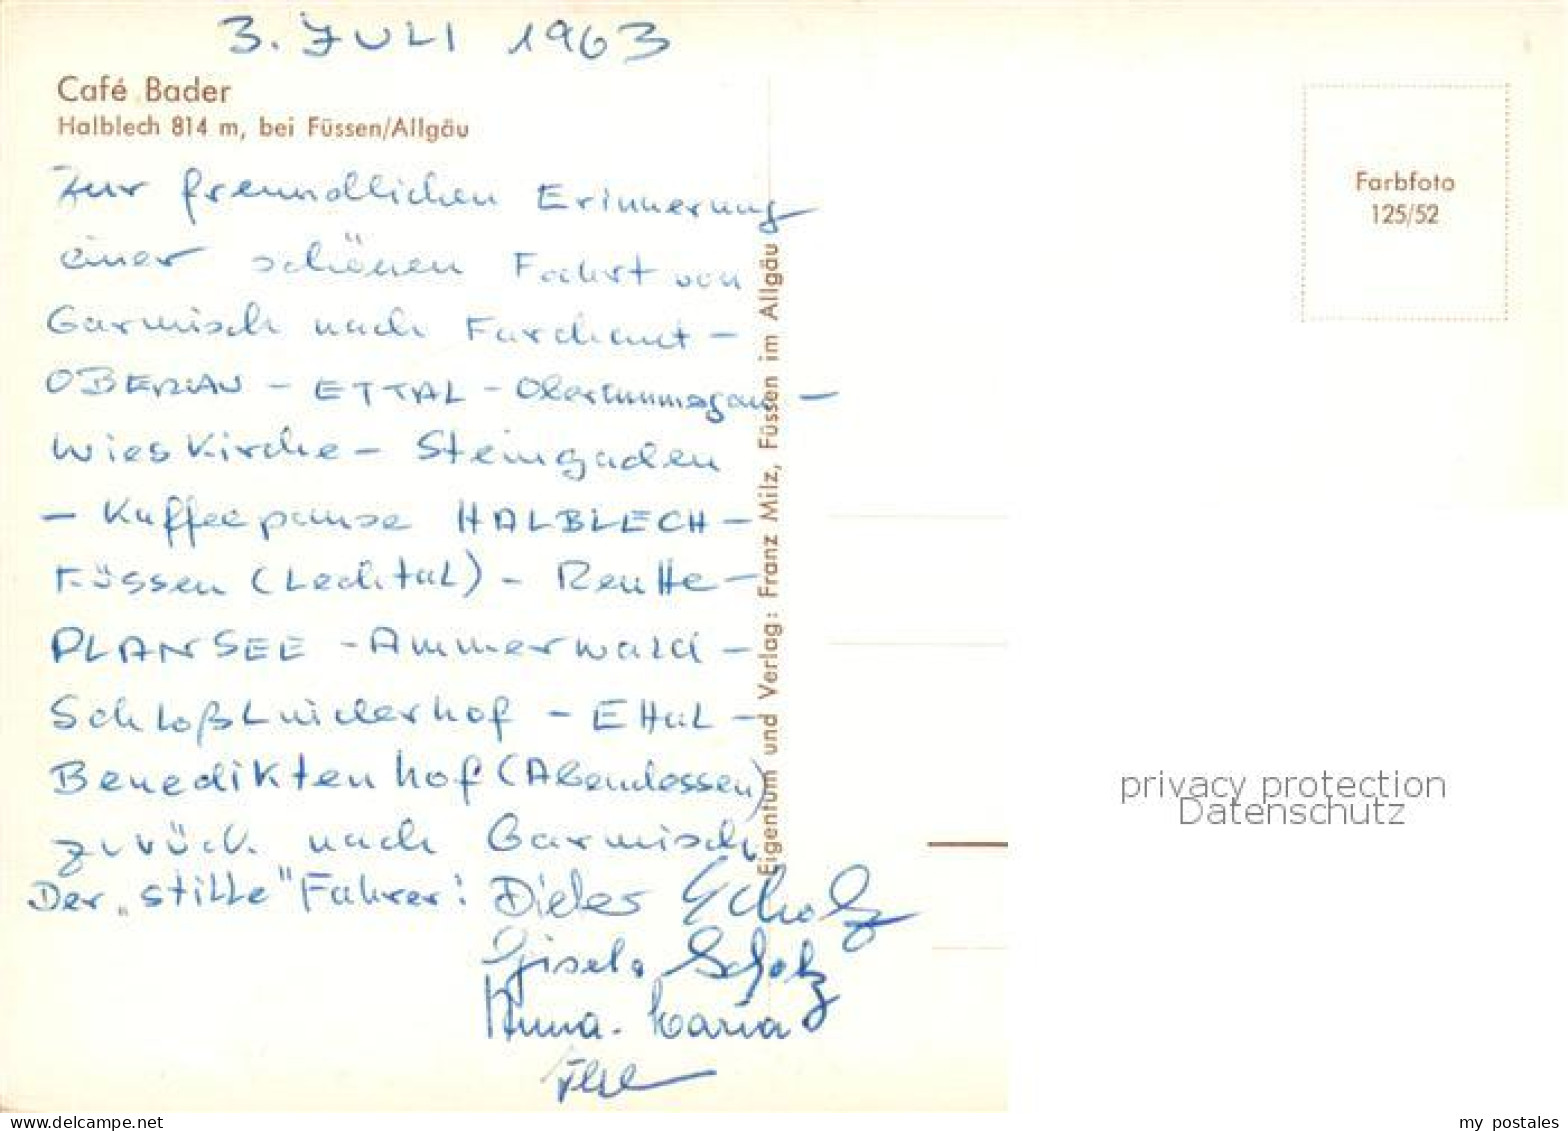 3. JULI 1963
Café Bader
Halblech 814 m, bei Füssen/Allgäu
Zur freundlichen Erinnerung
einer schönen Fahrt von
Garmisch nach Farchant -
OBERAU - ETTAL - Oberammagau -
Wieskirche - Steingaden
- Kaffeepause HALBLECH -
Füssen (Lechtal) - Reutte -
PLANSEE - Ammerwald -
Schloß Linderhof - Ettal -
Benediktenhof (Abendessen)
zurück nach Garmisch
Der „stille" Fahrer: Dieter Scholz
Gisela Scholz
Anna-Maria
Farbfoto
125/52
Eigentum und Verlag: Franz Milz, Füssen im Allgäu
privacy protection
Datenschutz
my_postales